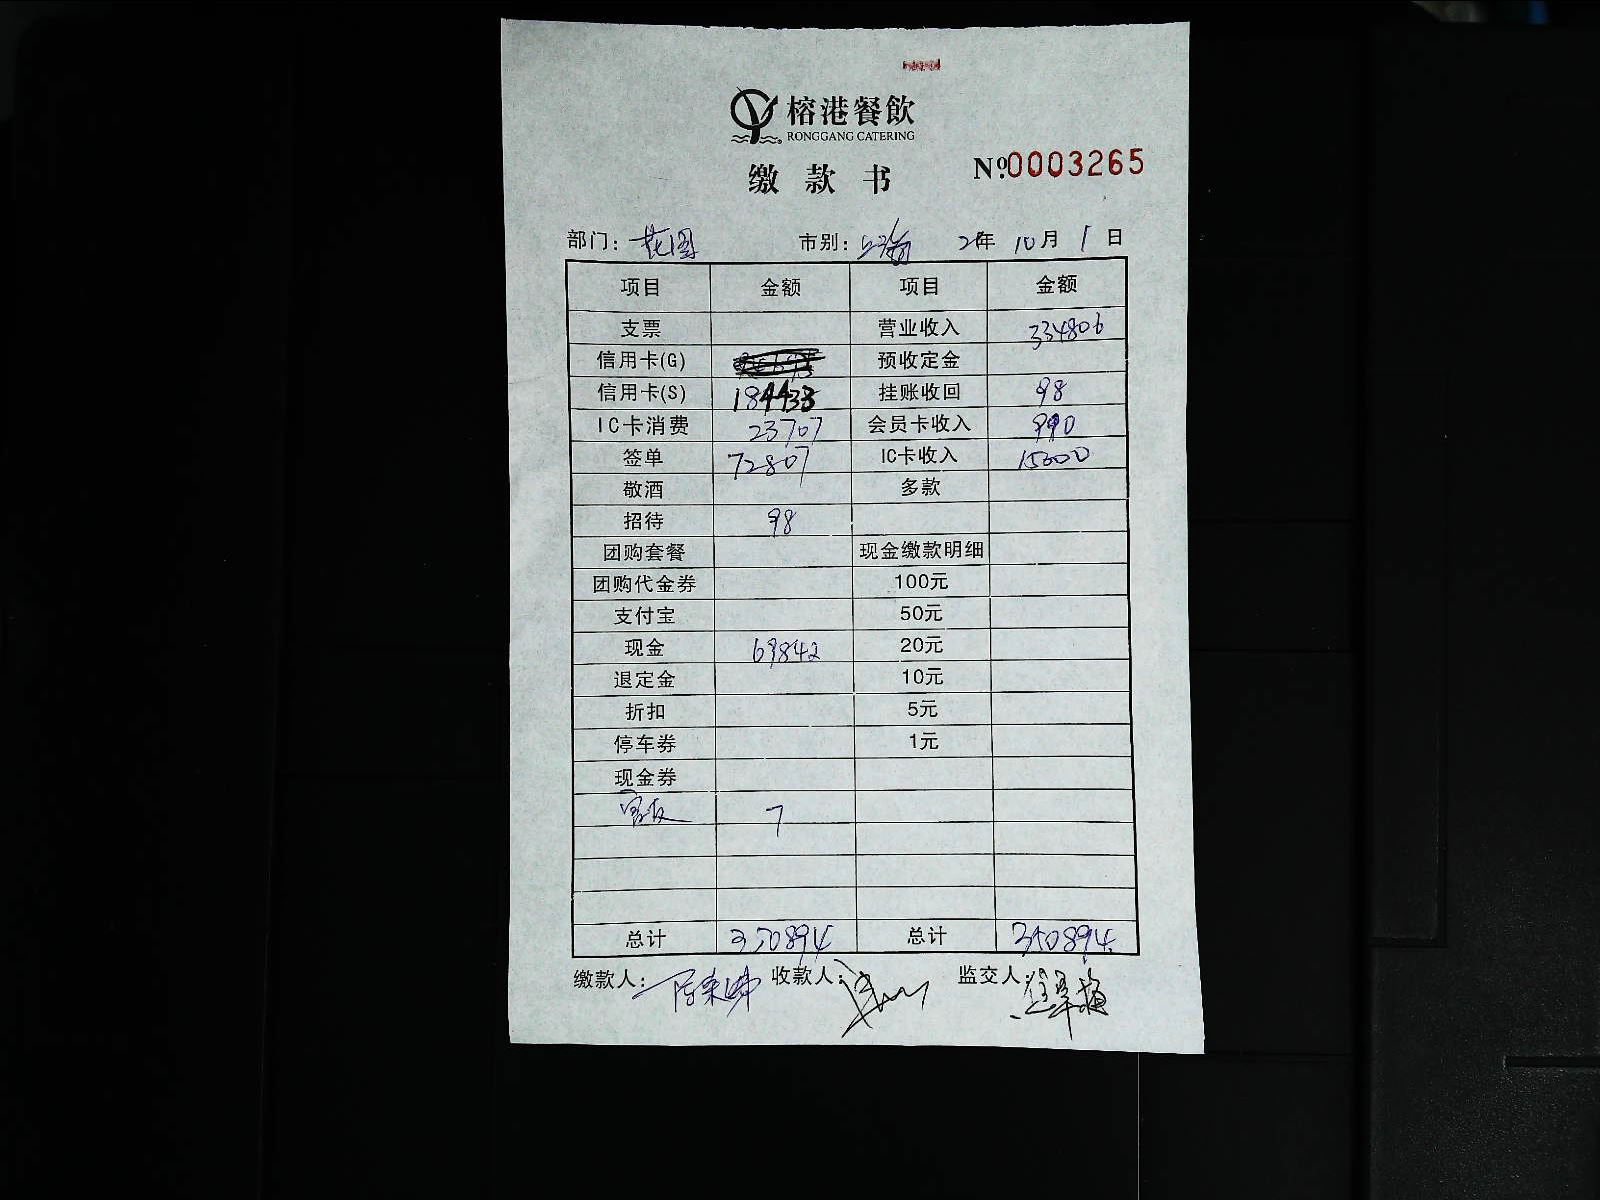 榕港餐飲
RONGGANG CATERING
缴款书
Nº0003265
部门: 花园 市别: 年 10月 1日
项目 金额 项目 金额
支票 营业收入 334806
信用卡(G) 预收定金
信用卡(S) 184433 挂账收回 98
IC卡消费 23707 会员卡收入 990
签单 72807 IC卡收入 15000
敬酒 多款
招待 98
团购套餐 现金缴款明细
团购代金券 100元
支付宝 50元
现金 69842 20元
退定金 10元
折扣 5元
停车券 1元
现金券
7
总计 350894 总计 350894
缴款人: 收款人: 监交人: